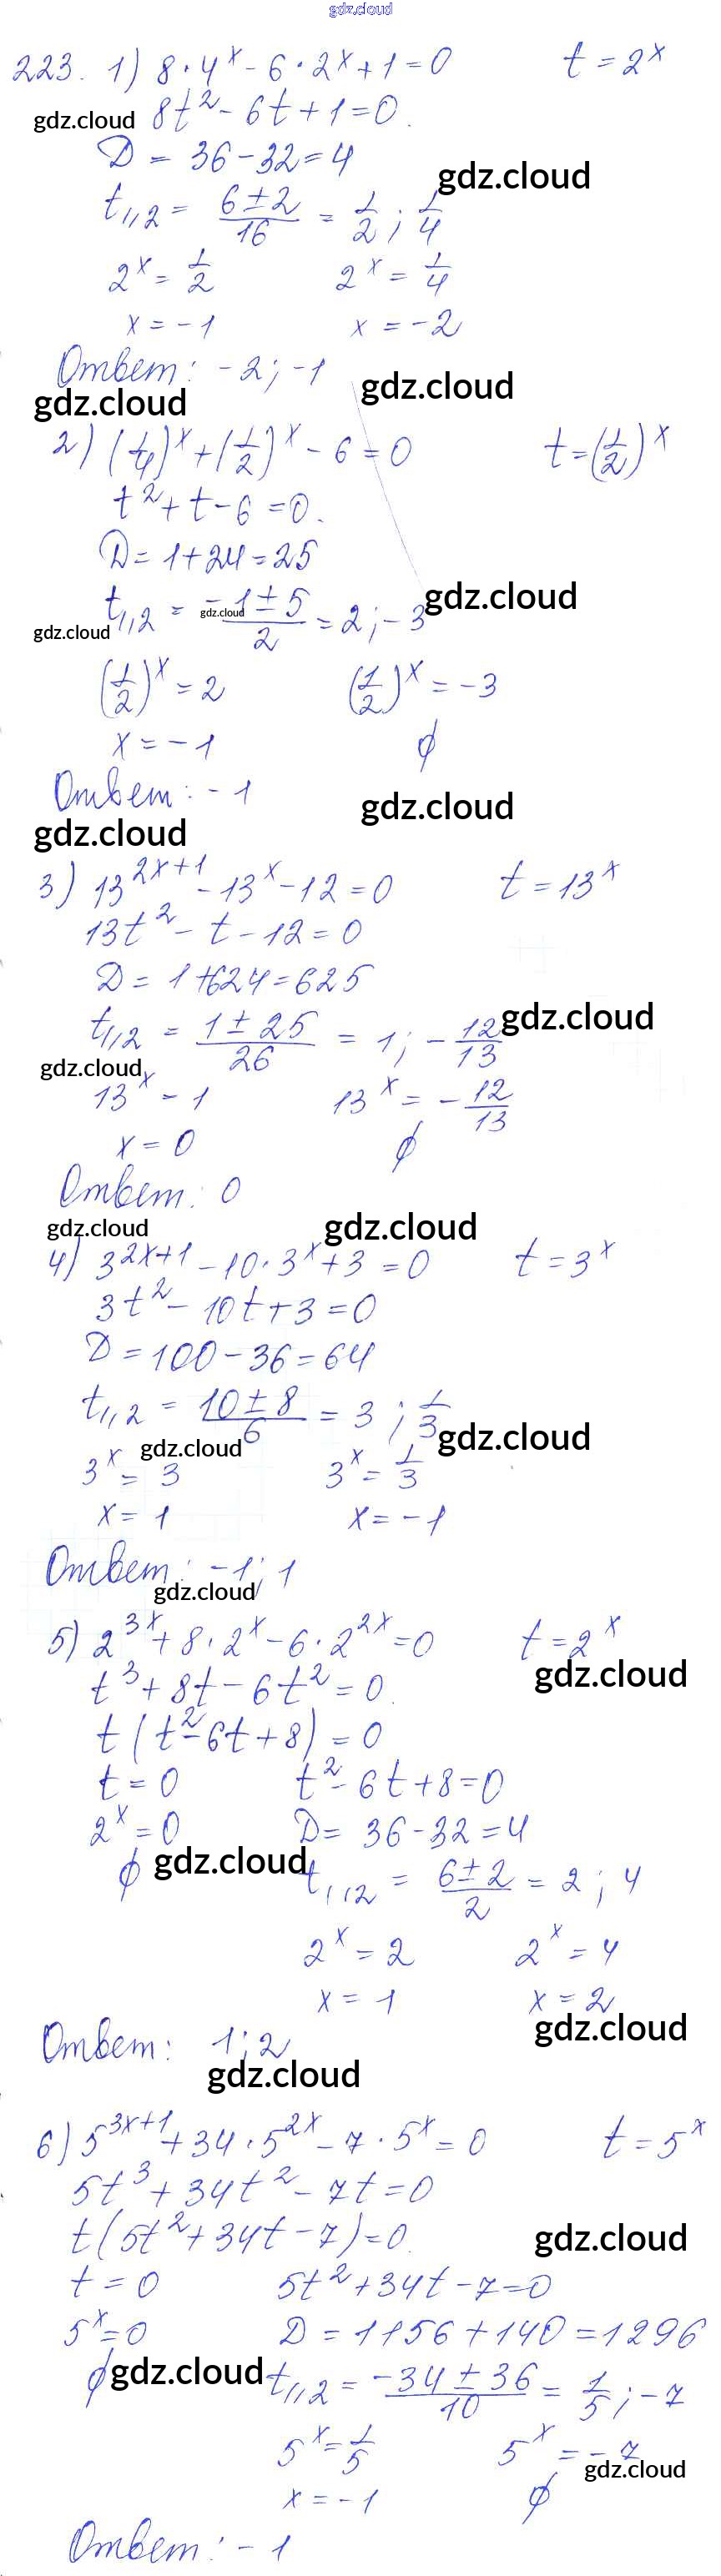 gdz.cloud
223. 1) 8·4^x - 6·2^x + 1 = 0   t = 2^x
gdz.cloud 8t² - 6t + 1 = 0.
D = 36 - 32 = 4 gdz.cloud
t₁,₂ = (6 ± 2)/16 = 1/2 ; 1/4
2^x = 1/2   2^x = 1/4
x = -1   x = -2
Ответ: -2; -1 gdz.cloud
gdz.cloud
2) (1/4)^x + (1/2)^x - 6 = 0   t = (1/2)^x
t² + t - 6 = 0.
D = 1 + 24 = 25
t₁,₂ = (-1 ± 5)/2 = 2; -3 gdz.cloud
gdz.cloud gdz.cloud
(1/2)^x = 2   (1/2)^x = -3
x = -1   ∅
Ответ: -1 gdz.cloud
gdz.cloud
3) 13^(2x+1) - 13^x - 12 = 0   t = 13^x
13t² - t - 12 = 0
D = 1 + 624 = 625
t₁,₂ = (1 ± 25)/26 = 1; -12/13 gdz.cloud
gdz.cloud
13^x - 1   13^x = -12/13
x = 0   ∅
Ответ: 0
gdz.cloud gdz.cloud
4) 3^(2x+1) - 10·3^x + 3 = 0   t = 3^x
3t² - 10t + 3 = 0
D = 100 - 36 = 64
t₁,₂ = (10 ± 8)/6 = 3 ; 1/3 gdz.cloud
gdz.cloud
3^x = 3   3^x = 1/3
x = 1   x = -1
Ответ: -1; 1
gdz.cloud
5) 2^(3x) + 8·2^x - 6·2^(2x) = 0   t = 2^x
gdz.cloud
t³ + 8t - 6t² = 0.
t(t² - 6t + 8) = 0
t = 0   t² - 6t + 8 = 0
2^x = 0   D = 36 - 32 = 4
∅ gdz.cloud t₁,₂ = (6 ± 2)/2 = 2 ; 4
2^x = 2   2^x = 4
x = 1   x = 2
gdz.cloud
Ответ: 1; 2
gdz.cloud
6) 5^(3x+1) + 34·5^(2x) - 7·5^x = 0   t = 5^x
5t³ + 34t² - 7t = 0
t(5t² + 34t - 7) = 0. gdz.cloud
t = 0   5t² + 34t - 7 = 0
5^x = 0   D = 1156 + 140 = 1296
∅ gdz.cloud t₁,₂ = (-34 ± 36)/10 = 1/5 ; -7
5^x = 1/5   5^x = -7
gdz.cloud
x = -1   ∅
Ответ: -1